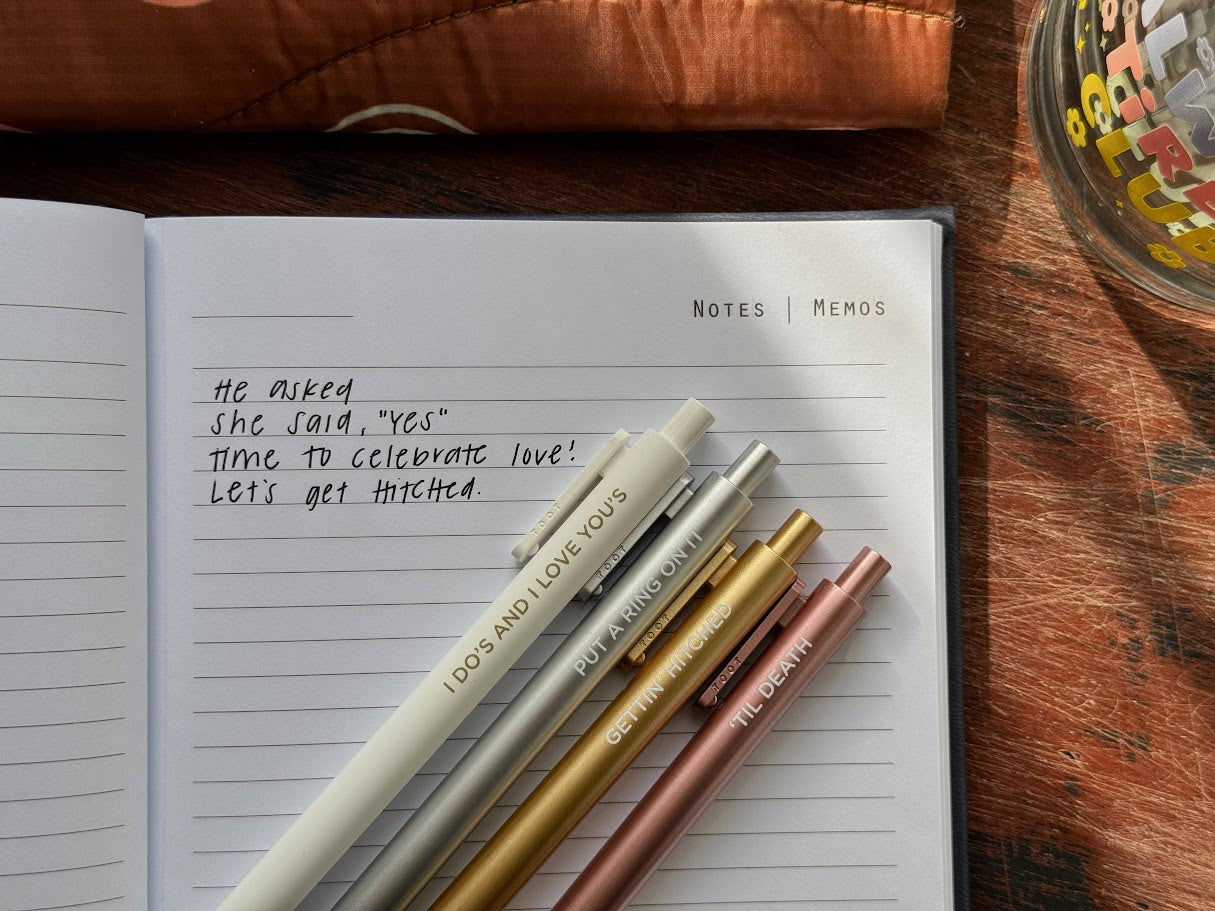 NOTES | MEMOS
He asked
she said, "Yes"
Time to celebrate love!
Let's get Hitched.
I DO'S AND I LOVE YOU'S
PUT A RING ON IT
GETTIN' HITCHED
'TIL DEATH
TOOT
TOOT
TOOT
TOOT
CLUB